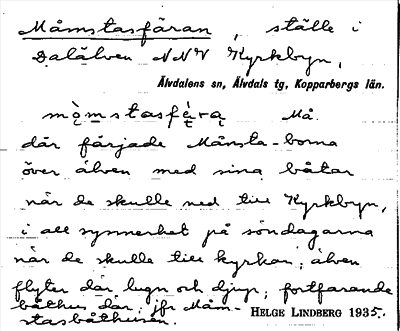 Månstasfäran, ställe i
Dalälven NNV Kyrkbyn,
Älvdalens sn, Älvdals tg, Kopparbergs län.
Må.
där färjade Månsta-borna
över älven med sina båtar
när de skulle ned till Kyrkbyn,
i all synnerhet på söndagarna
när de skulle till kyrkan; älven
flyter där lugn och djup; fortfarande
båthus där. jfr Mån-
stasbåthusen.
HELGE LINDBERG 1935.